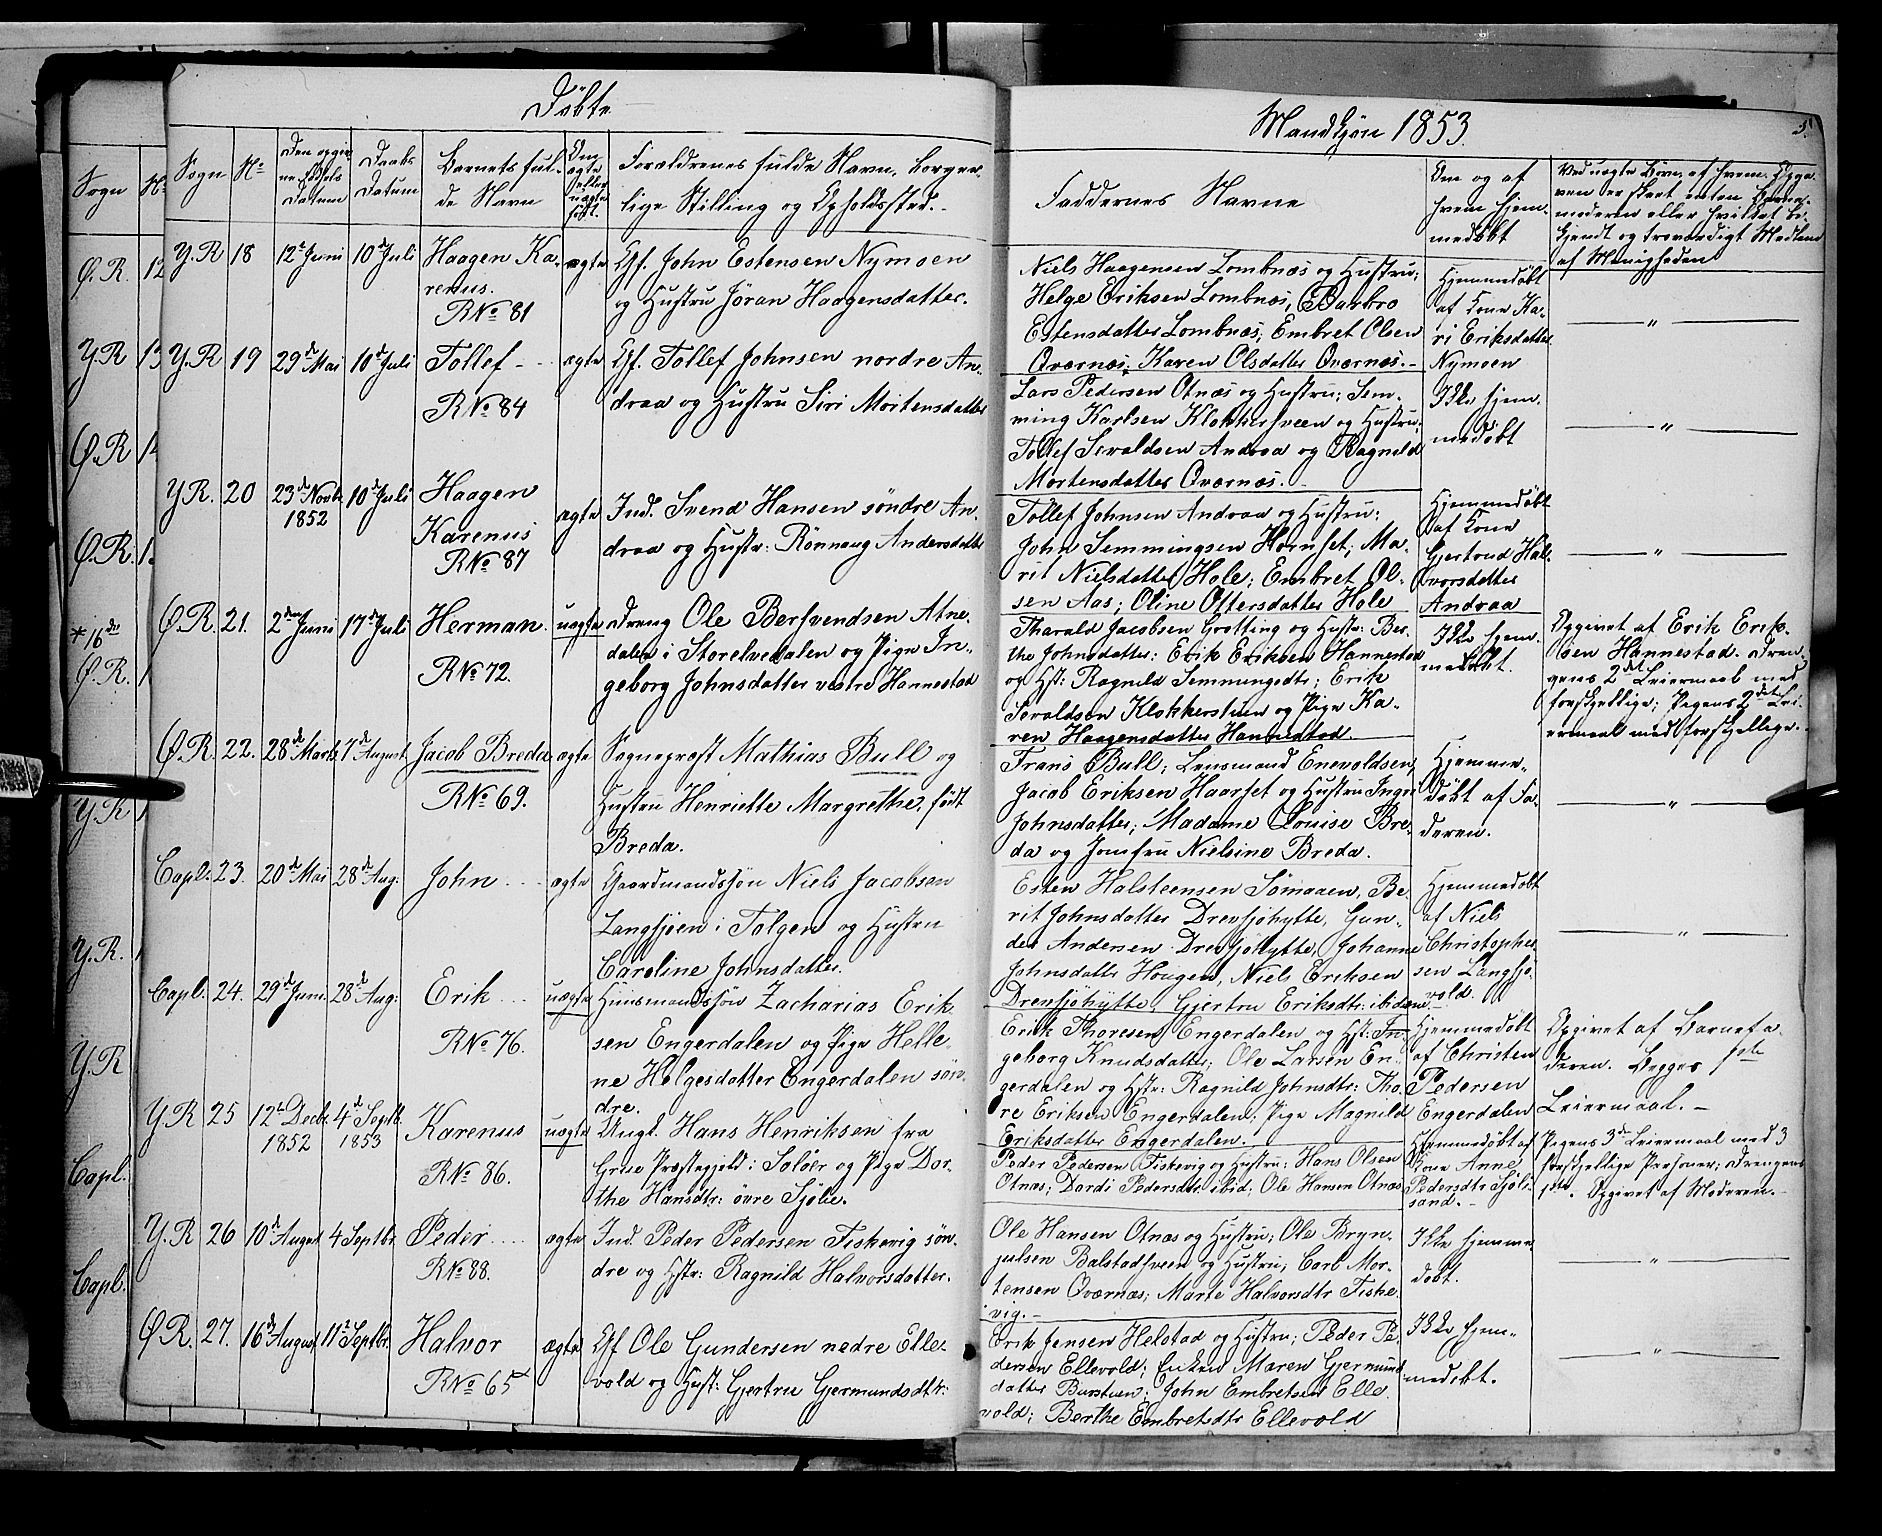 Döbte
Mandkjøn 1853.
5
Sogn
No
Den opgiv-
ne Födsels
Datum
Daabs
Datum
Barnets ful-
de Navn
Om
ægte
eller
uægte
født.
Forældrenes fulde Navn, borger-
lige Stilling og Opholdssted.
Faddernes Navne
Om og af
hvem hjem-
medøbt
Ved uægte Børn, af hvem Opga-
ven er skeet enten Barne-
moderen eller hvilket be-
kjendt og troværdigt Medlem
af Menigheden
Sogn
Ø.R. 12
Y.R 13
Ø.R 14
Ø.R.
*16de
Ø.R.
Y.R
Y.R.
Y.R
Capl.
Capl.
Y.R 18 12te Juni 10de Juli Haagen Ka-
renus.
RNo 81
ægte
Gf. John Estensen Nymoen
og Hustru Jöran Haagensdatter.
Niels Haagensen Lombnæs og Hustru;
Helge Eriksen Lombnæs, Barbro
Estensdatter Lombnæs; Embret Olsen
Qværnæs; Karen Olsdatter Qværnæs.-
Hjemmedöbt
af Kone Ka-
ri Eriksdatter
Nymoen
— " —
Y.R 19 29de Mai 10de Juli Tollef
RNo 84
ægte
Gf. Tollef Johnsen nordre An-
draa og Hustru Siri Mortensdatter
Lars Pedersen Otnæs og Hustru; Sem-
ming Karlsen Klokkersveen og Hustru;
Tollef Sevaldsen Andraa og Ragnild
Mortensdatter Qværnæs.-
Ikke hjem-
medøbt
— " —
Y.R. 20 23de Novbr
1852
10de Juli Haagen
Karenus
RNo 87
ægte
Ind. Svend Hansen söndre An-
draa og Hustr: Rönnaug Andersdatter
Tollef Johnsen Andraa og Hustru;
John Semmingsen Hornset; Ma-
rit Nielsdatter Hole; Embret Ol-
sen Aas; Oline Ottersdatter Hole
Hjemmedöbt
af Kone
Gjertrud Hal-
vorsdatter
Andraa
— " —
Ø.R. 21. 2den Juni 17de Juli Herman.
RNo 72.
uægte
Dreng Ole Bersvendsen Atne-
dalen i Storelvedalen og Pige In-
geborg Johnsdatter vestre Hannestad
Tharald Jacobsen Grötting og Hustr: Ber-
the Johnsdatter: Erik Eriksen Hannestad
og Hst: Ragnild Semmingsdtr; Erik
Sevaldsen Klokkerstuen og Pige Ka-
ren Haagensdatter Hannestad.
Ikke hjem-
medøbt.
Opgivet af Erik Erik-
sen Hannestad. Dren-
gens 2det Leiermaal med
forskjellige; Pigens 2det Lei-
ermaal med forskjellige.
Ø.R. 22. 28de Marts 7de August Jacob Breda
RNo 69.
ægte
Sogneprest Mathias Bull og
Hustru Henriette Margrethe, født
Breda.
Frans Bull; Lensmand Enevoldsen;
Jacob Eriksen Haarset og Hustru Ingri
Johnsdatter; Madame Louise Bre-
da og Jomfru Nielsine Breda.
Hjemme-
döbt af Fa-
deren.
— " —
Capl. 23. 20de Mai 28de Aug: John
ægte
Gaardmandssön Niels Jacobsen
Langsjøen i Tolgen og Hustru
Caroline Johnsdatter.
Esten Halsteensen Sömaaen, Be-
rit Johnsdatter Drevsjöhytte, Gun-
der Andersen Drevsjöhytte, Johanne
Johnsdatter Hougen, Niels Eriksen
Drevsjöhytte; Gjertru Eriksdtr: ibidem
Hjemmedöbt
af Niels
Christopher-
sen Langsjö-
vold.
— " —
Capl. 24. 29de Juni. 28de Aug: Erik
RNo 76.
uægte
Huusmandssøn Zacharias Erik-
sen Engerdalen og Pige Helle-
ne Helgesdatter Engerdalen søn-
dre.
Erik Thoresen Engerdalen og Hst: In-
geborg Knudsdatter; Ole Larsen En-
gerdalen og Hstr: Ragnild Johnsdtr: Tho-
re Eriksen Engerdalen; Pige Magnild
Eriksdatter Engerdalen.
Hjemmedöbt
af Christen
Pedersen
Engerdalen
Opgivet af Barnefa-
deren. Begges 1ste
Leiermaal. -
Y.R 25 12te Decbr.
1852
4de Septb.
1853
Karenus
RNo 86.
uægte
Ungk. Hans Henriksen fra
Grue Præstegjeld i Soløer og Pige Dor-
the Hansdtr: övre Sjölie.
Peder Pedersen Fiskevig og Hustru: Hans Olsen
Otnæs; Dordi Pedersdtr ibid; Ole Hansen Otnæs
Hjemmedöbt af
Kone Anne
Pedersdtr Sjöli-
sand. -
Pigens 3de Leiermaal med 3
forskjellige Personer; Drengens
1ste. Opgivet af Moderen.-
Y.R 26 10de August 4 Septbr. Peder
RNo 88.
ægte
Ind. Peder Pedersen Fiskevig søn-
dre og Hstr: Ragnild Halvorsdatter.
Ole Hansen Otnæs og Hustru; Ole Bryn-
julsen Balstadsveen og Hustru; Carl Mor-
tensen Qværnæs; Marte Halvorsdtr Fiske-
vig.-
Ikke hjemme-
døbt.
— " —
Ø.R. 27. 16de August 11te Septbr. Halvor
RNo 65
ægte
Gf Ole Gundersen nedre Elle-
vold og Hust: Gjertru Gjermundsdtr:
Erik Jensen Helstad og Hustru; Peder Pe-
dersen Ellevold; Enken Maren Gjermund-
datter Burstuen; John Embretsen Elle-
vold; Berthe Embretsdtr Ellevold
Ikke hjem-
medøbt.
— " —